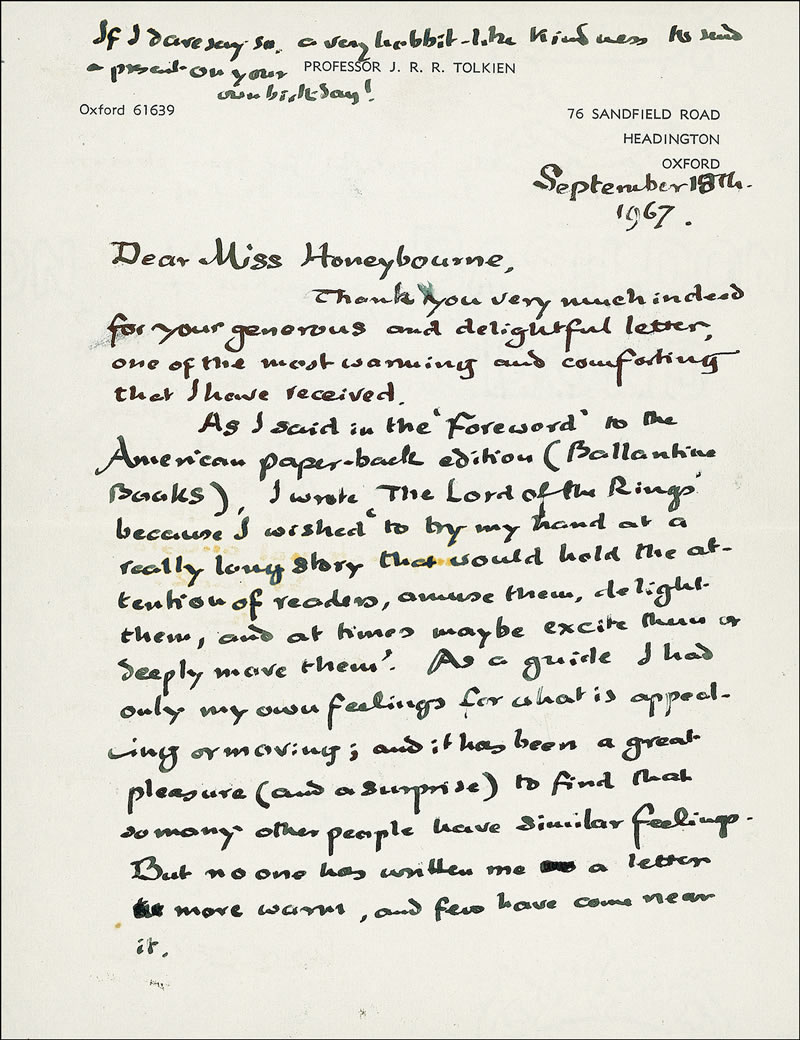 If I dare say so, a very hobbit-like kindness to send
a present on your
own birthday!
PROFESSOR J. R. R. TOLKIEN
Oxford 61639
76 SANDFIELD ROAD
HEADINGTON
OXFORD
September 18th.
1967.
Dear Miss Honeybourne,
Thank you very much indeed
for your generous and delightful letter,
one of the most warming and comforting
that I have received.
As I said in the 'Foreword' to the
American paper-back edition (Ballantine
Books), I wrote 'The Lord of the Rings'
because I wished 'to try my hand at a
really long story that would hold the at-
tention of readers, amuse them, delight
them, and at times maybe excite them or
deeply move them'. As a guide I had
only my own feelings for what is appeal-
ing or moving; and it has been a great
pleasure (and a surprise) to find that
so many other people have similar feelings.
But no one has written me a letter
more warm, and few have come near
it.